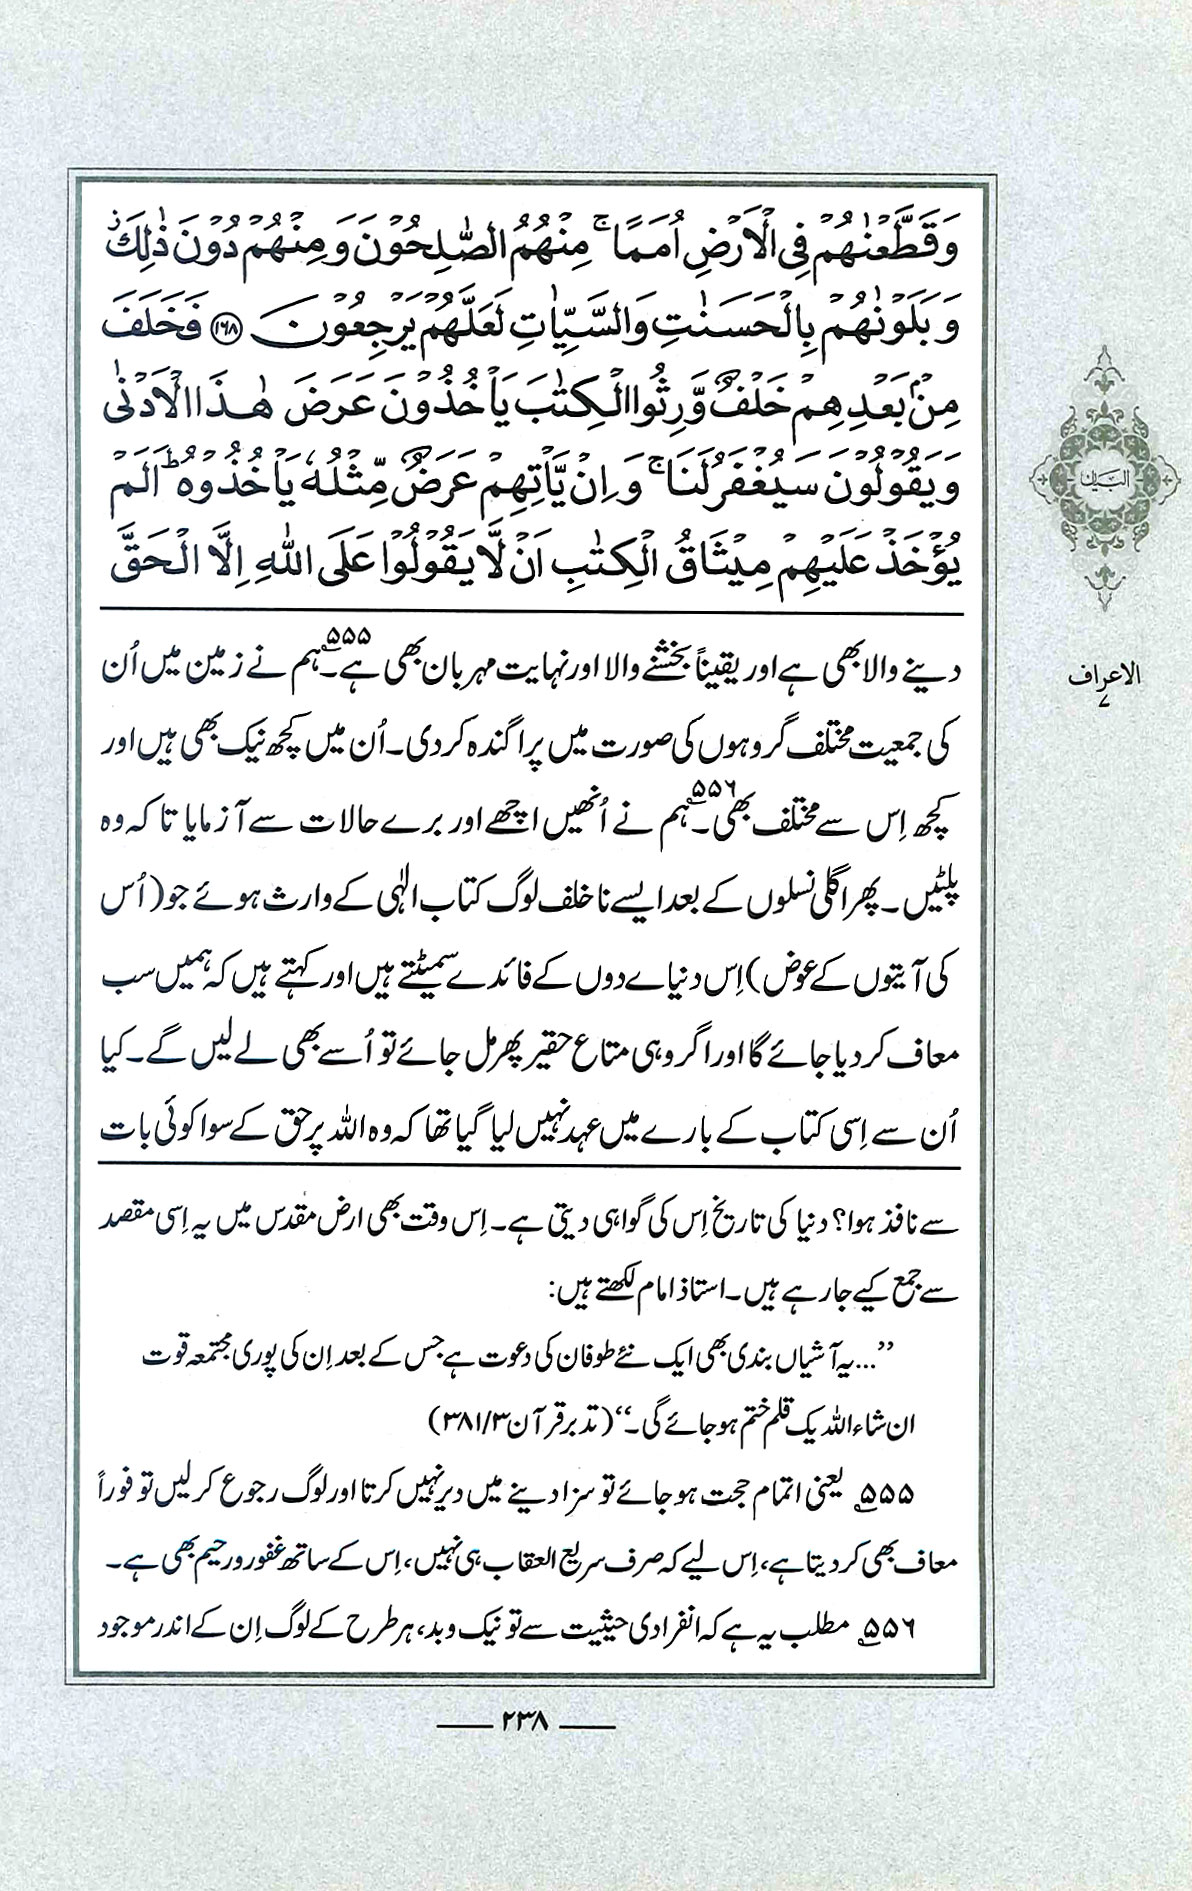 وَقَطَّعْنٰهُمْ فِی الْاَرْضِ اُمَمًا ۚ مِنْهُمُ الصّٰلِحُوْنَ وَ مِنْهُمْ دُوْنَ ذٰلِكَ ؗ
وَ بَلَوْنٰهُمْ بِالْحَسَنٰتِ وَالسَّیِّاٰتِ لَعَلَّهُمْ یَرْجِعُوْنَ ﴿۱۶۸﴾ فَخَلَفَ
مِنْۢ بَعْدِهِمْ خَلْفٌ وَّرِثُوا الْكِتٰبَ یَاْخُذُوْنَ عَرَضَ هٰذَا الْاَدْنٰی
وَیَقُوْلُوْنَ سَیُغْفَرُ لَنَا ۚ وَ اِنْ یَّاْتِهِمْ عَرَضٌ مِّثْلُهٗ یَاْخُذُوْهُ ؕ اَلَمْ
یُؤْخَذْ عَلَیْهِمْ مِیْثَاقُ الْكِتٰبِ اَنْ لَّا یَقُوْلُوْا عَلَی اللّٰهِ اِلَّا الْحَقَّ
دینے والا بھی ہے اور یقیناً بخشنے والا اور نہایت مہربان بھی ہے۔۵۵۵ ہم نے زمین میں اُن
کی جمعیت مختلف گروہوں کی صورت میں پراگندہ کر دی۔ اُن میں کچھ نیک بھی ہیں اور
کچھ اِس سے مختلف بھی۔۵۵۶ ہم نے اُنھیں اچھے اور برے حالات سے آزمایا تاکہ وہ
پلٹیں۔ پھر اگلی نسلوں کے بعد ایسے ناخلف لوگ کتاب الٰہی کے وارث ہوئے جو (اُس
کی آیتوں کے عوض) اِس دنیاے دوں کے فائدے سمیٹتے ہیں اور کہتے ہیں کہ ہمیں سب
معاف کر دیا جائے گا اور اگر وہی متاع حقیر پھر مل جائے تو اُسے بھی لے لیں گے۔ کیا
اُن سے اِسی کتاب کے بارے میں عہد نہیں لیا گیا تھا کہ وہ اللہ پر حق کے سوا کوئی بات
سے نافذ ہوا؟ دنیا کی تاریخ اِس کی گواہی دیتی ہے۔ اِس وقت بھی ارض مقدس میں یہ اِسی مقصد
سے جمع کیے جا رہے ہیں۔ استاذ امام لکھتے ہیں:
”...یہ آشیاں بندی بھی ایک نئے طوفان کی دعوت ہے جس کے بعد اِن کی پوری مجتمعہ قوت
ان شاء اللہ یک قلم ختم ہو جائے گی۔“ (تدبر قرآن ۳/۳۸۱)
۵۵۵؂ یعنی اتمام حجت ہو جائے تو سزا دینے میں دیر نہیں کرتا اور لوگ رجوع کر لیں تو فوراً
معاف بھی کر دیتا ہے، اِس لیے کہ صرف سریع العقاب ہی نہیں، اِس کے ساتھ غفور و رحیم بھی ہے۔
۵۵۶؂ مطلب یہ ہے کہ انفرادی حیثیت سے تو نیک و بد، ہر طرح کے لوگ اِن کے اندر موجود
البیان
الاعراف
۷
۲۳۸